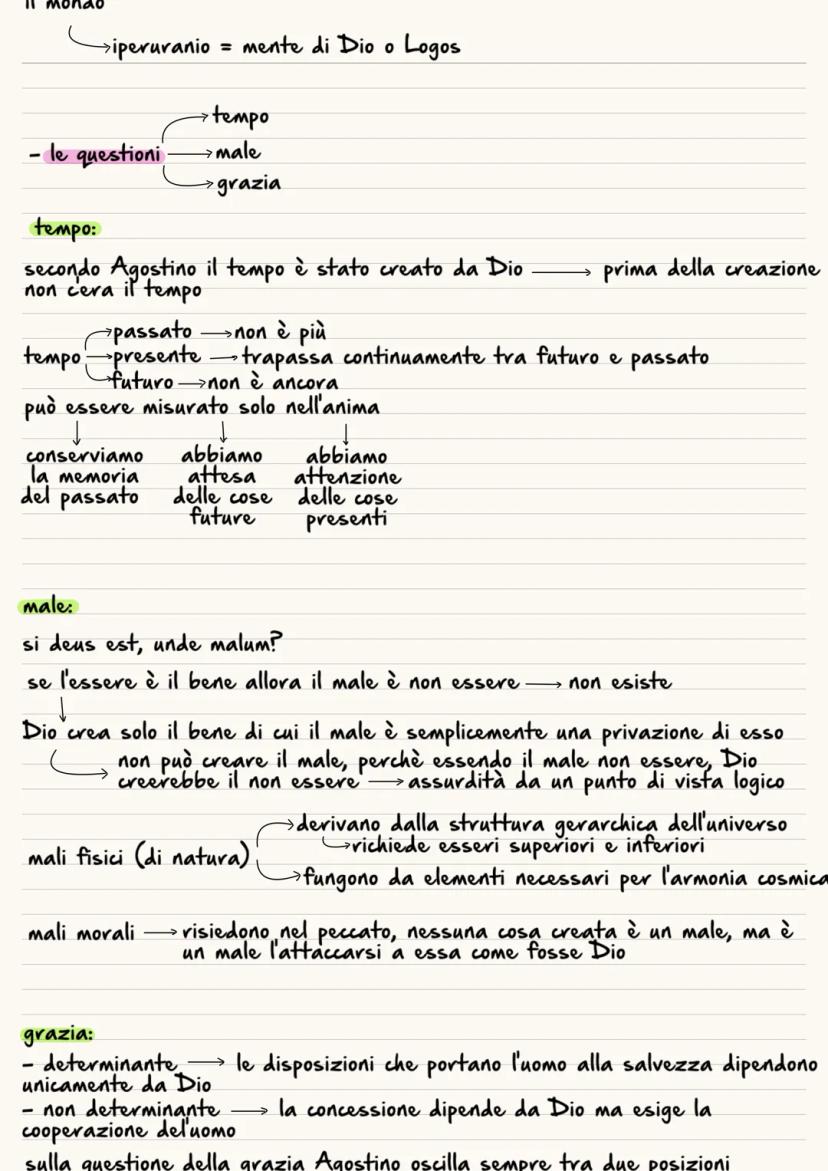 il mondo
iperuranio = mente di Dio o Logos
tempo
- le questioni → male
grazia
tempo:
secondo Agostino il tempo è stato creato da Dio → prima della creazione
non c'era il tempo
passato → non è più
tempo → presente → trapassa continuamente tra futuro e passato
futuro → non è ancora
può essere misurato solo nell'anima
conserviamo abbiamo abbiamo
la memoria attesa attenzione
del passato delle cose delle cose
future presenti
male:
si deus est, unde malum?
se l'essere è il bene allora il male è non essere → non esiste
Dio crea solo il bene di cui il male è semplicemente una privazione di esso
non può creare il male, perchè essendo il male non essere, Dio
creerebbe il non essere → assurdità da un punto di vista logico
derivano dalla struttura gerarchica dell'universo
richiede esseri superiori e inferiori
mali fisici (di natura)
fungono da elementi necessari per l'armonia cosmica
mali morali → risiedono nel peccato, nessuna cosa creata è un male, ma è
un male l'attaccarsi a essa come fosse Dio
grazia:
- determinante → le disposizioni che portano l'uomo alla salvezza dipendono
unicamente da Dio
- non determinante → la concessione dipende da Dio ma esige la
cooperazione del'uomo
sulla questione della grazia Agostino oscilla sempre tra due posizioni